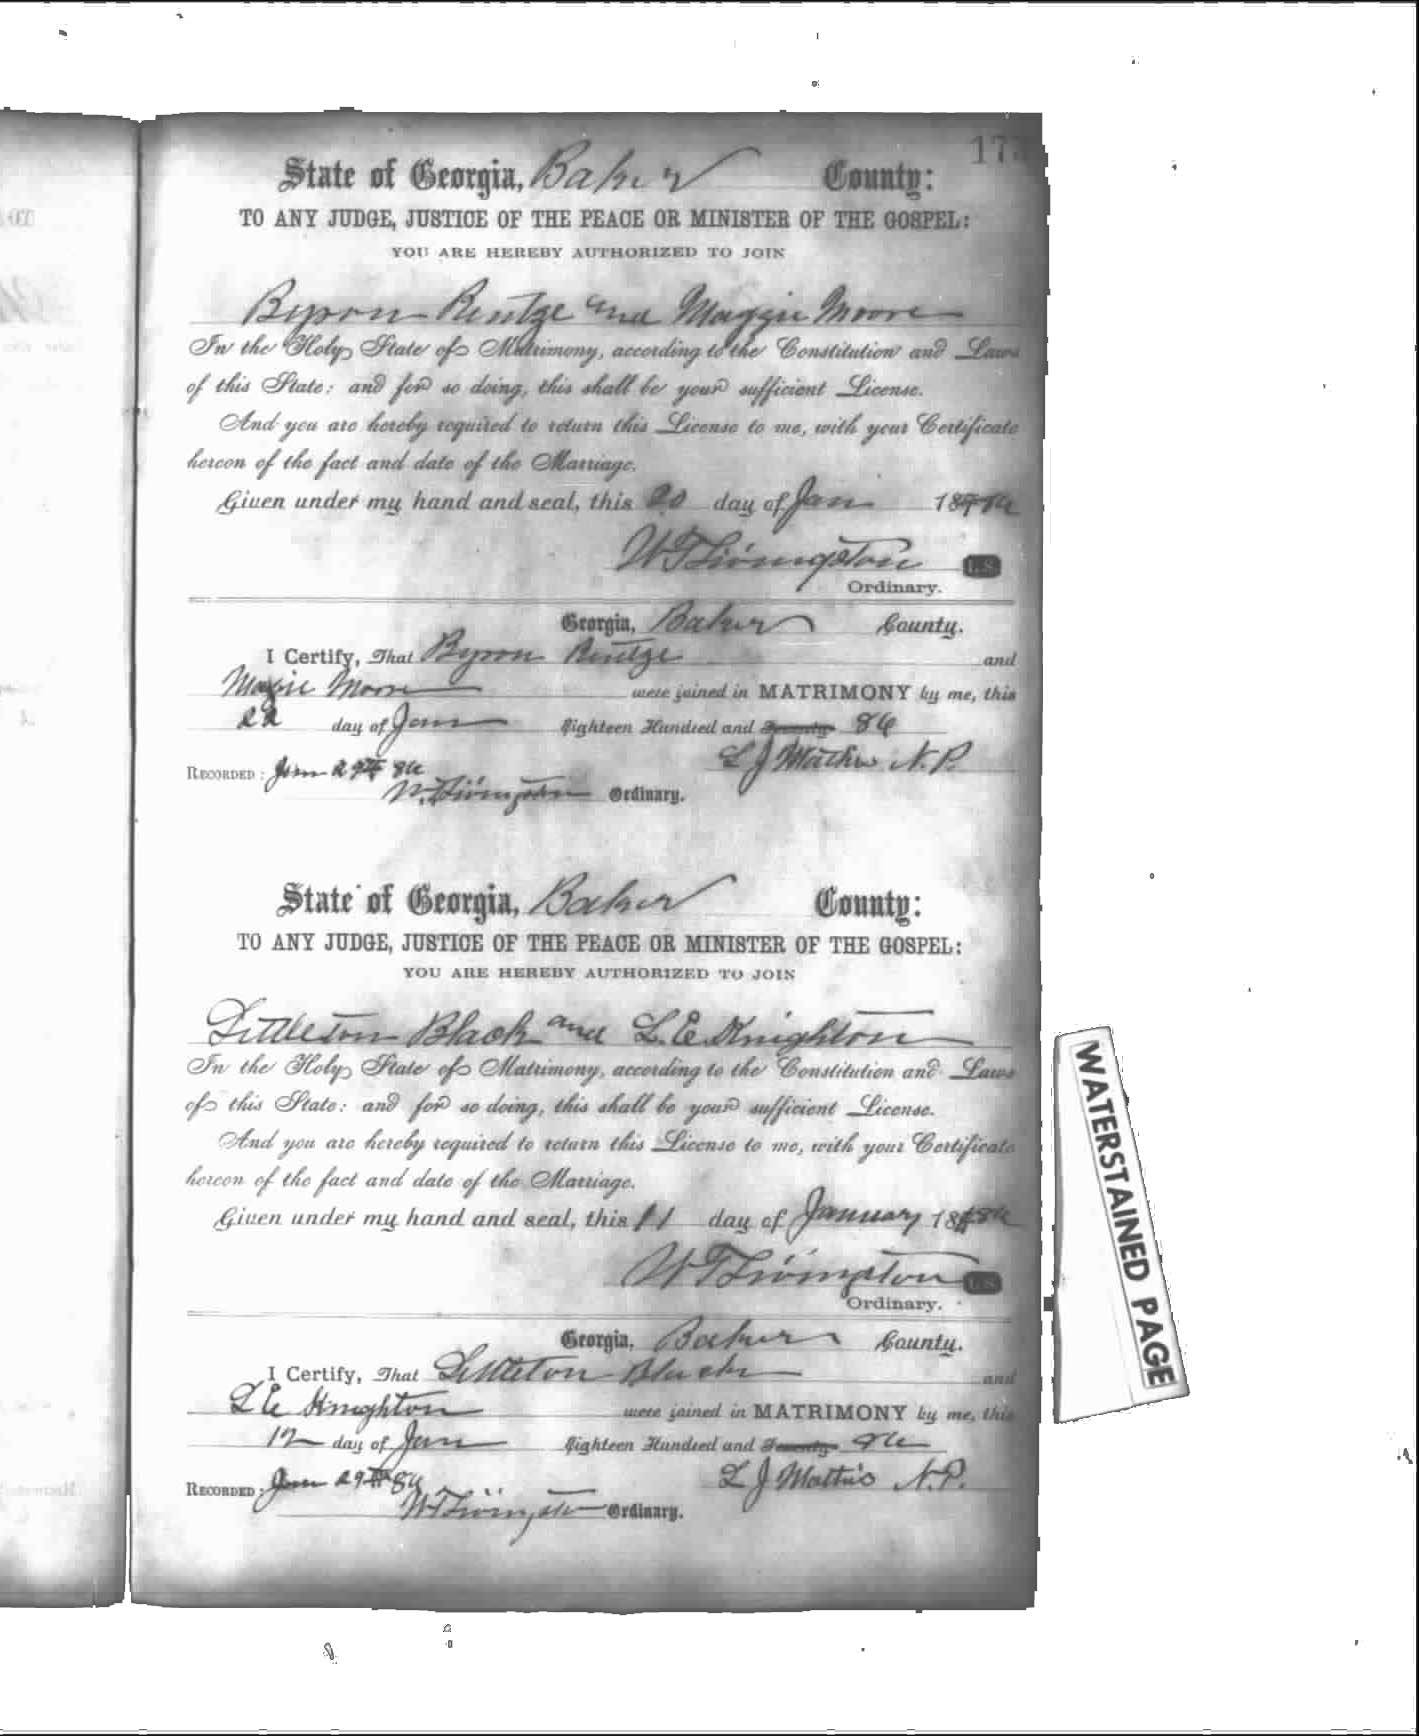 State of Georgia, Baker County:
TO ANY JUDGE, JUSTICE OF THE PEACE OR MINISTER OF THE GOSPEL:
YOU ARE HEREBY AUTHORIZED TO JOIN
Byron Rentze and Maggie Moore
In the Holy State of Matrimony, according to the Constitution and Laws
of this State: and for so doing, this shall be your sufficient License.
And you are hereby required to return this License to me, with your Certificate
hereon of the fact and date of the Marriage.
Given under my hand and seal, this 20 day of Jan 1886
W T Livingston L.S.
Ordinary.
Georgia, Baker County.
I Certify, That Byron Rentze and
Maggie Moore were joined in MATRIMONY by me, this
22 day of Jan Eighteen Hundred and Seventy 86
L J Mathis N.P.
RECORDED: Jan 29th 86
W T Livingston Ordinary.
State of Georgia, Baker County:
TO ANY JUDGE, JUSTICE OF THE PEACE OR MINISTER OF THE GOSPEL:
YOU ARE HEREBY AUTHORIZED TO JOIN
Littleton Black and L. E. Knighton
In the Holy State of Matrimony, according to the Constitution and Laws
of this State: and for so doing, this shall be your sufficient License.
And you are hereby required to return this License to me, with your Certificate
hereon of the fact and date of the Marriage.
Given under my hand and seal, this 11 day of January 1886
W T Livingston L.S.
Ordinary.
Georgia, Baker County.
I Certify, That Littleton Black and
L E Knighton were joined in MATRIMONY by me, this
12 day of Jan Eighteen Hundred and Seventy 86
L J Mathis N.P.
RECORDED: Jan 29th 86
W T Livingston Ordinary.
WATERSTAINED PAGE